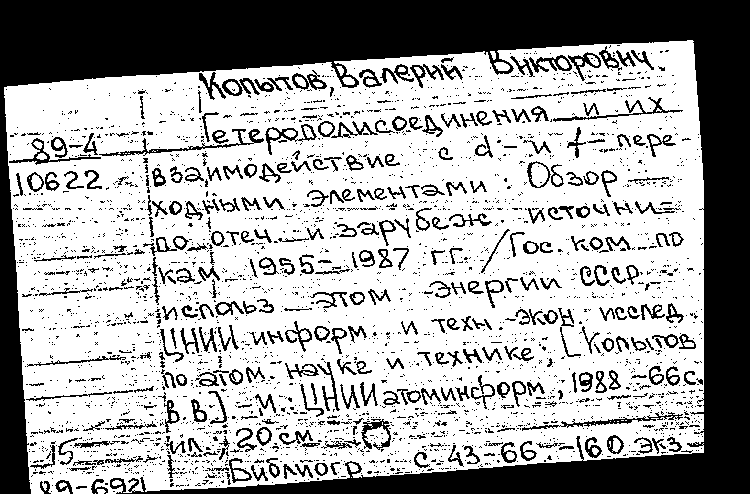 Копытов, Валерий Викторович.
Гетерополисоединения и их
89-4
взаимодействие с d- и f- пере-
10622
ходными элементами : Обзор
по отеч. и зарубеж. источни-
кам 1955-1987 гг. / Гос. ком. по
использ. атом. энергии СССР,
ЦНИИ информ. и техн.-экон. исслед.
по атом. науке и технике; [Копытов
В.В.]. -М.: ЦНИИатоминформ, 1988. -66с.
ил.; 20 см
15
Библиогр.: с. 43-66. -160 экз
89-6921